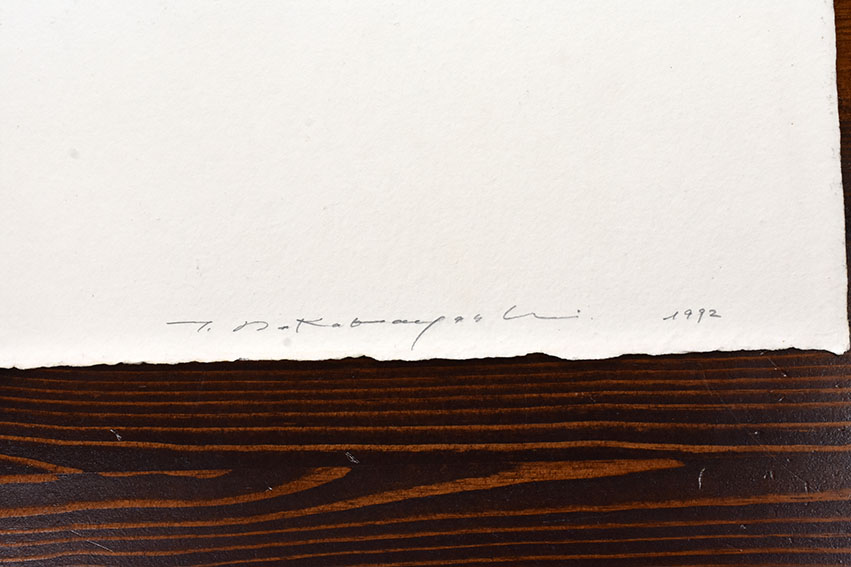 T. Nakabayashi 1992